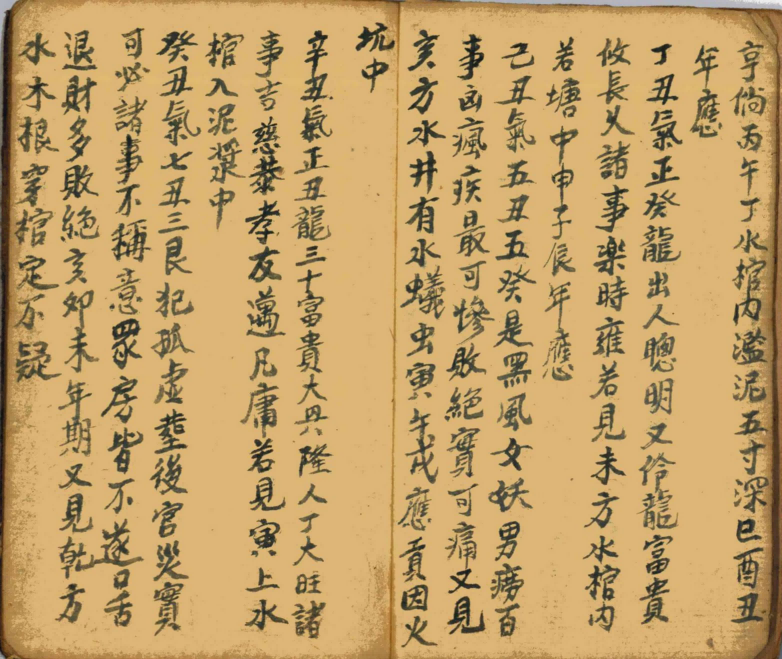 亨倘丙午丁水棺内濫泥五寸深巳酉丑
年應
丁丑氣正癸龍出人聰明又伶龍富貴
攸長久諸事樂時雍若見未方水棺内
若塘中申子辰年應
己丑氣五丑五癸是黑風女妖男癆百
事凶瘋疾最可慘敗絕實可痛又見
亥方水井有水蟻虫寅午戌應貢因火
坑中
辛丑氣正丑龍三十富貴大興隆人丁大旺諸
事吉慈恭孝友邁凡庸若見寅上水
棺入泥漿中
癸丑氣七丑三艮犯孤虛葬後官災實
可必諸事不稱意眾房皆不遂口舌
退財多敗絕亥卯未年期又見乾方
水木根穿棺定不疑